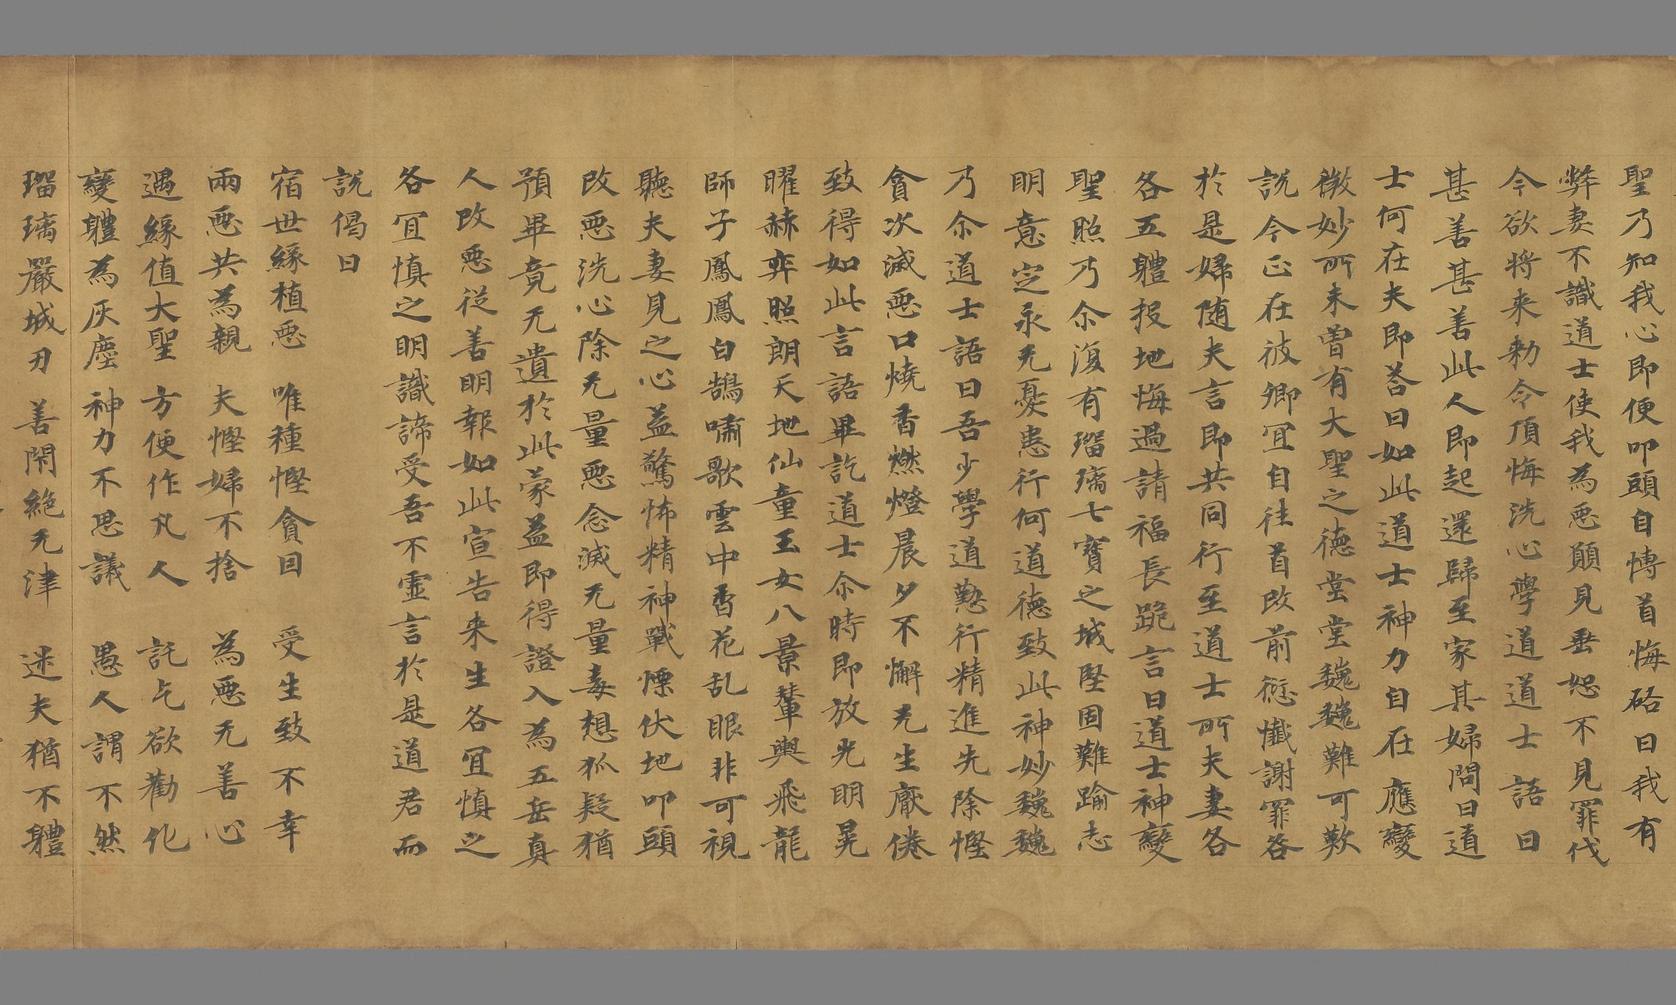 聖乃知我心即便叩頭自慱首悔硌曰我有
弊妻不識道士使我為惡願見垂恕不見罪代
今欲将来勑令頂悔洗心學道道士語曰
甚善甚善此人即起還歸至家其婦問曰道
士何在夫即荅曰如此道士神力自在應變
微妙所未曽有大聖之德堂堂巍巍難可歎
說今正在彼卿冝自往首改前愆懺謝罪咎
於是婦随夫言即共同行至道士所夫妻各
各五軆投地悔過請福長跪言曰道士神變
聖照乃尒復有瑠璃七寶之城堅固難踰志
明意定永无憂患行何道德致此神妙巍巍
乃尒道士語曰吾少學道懃行精進先除慳
貪次滅惡口燒香燃燈晨夕不懈先生厭倦
致得如此言語畢訖道士尒時即放光明晃
曜赫弈照朗天地仙童玉女八景輦輿飛龍
師子鳳鳳白鵠嘯歌雲中香花乱眼非可視
聽夫妻見之心益驚怖精神戰慄伏地叩頭
改惡洗心除无量惡念滅无量毒想狐疑猶
預畢竟无遺於此蒙益即得證入為五岳真
人改惡從善明報如此宣告来生各冝慎之
各冝慎之明識諦受吾不虛言於是道君而
說偈曰
宿世緣植惡 唯種慳貪因 受生致不幸
兩惡共為親 夫慳婦不捨 為惡无善心
遇緣值大聖 方便作凡人 託乞欲勸化
變軆為灰塵 神力不思議 愚人謂不然
瑠璃嚴城刃 善閇絕无津 迷夫猶不軆